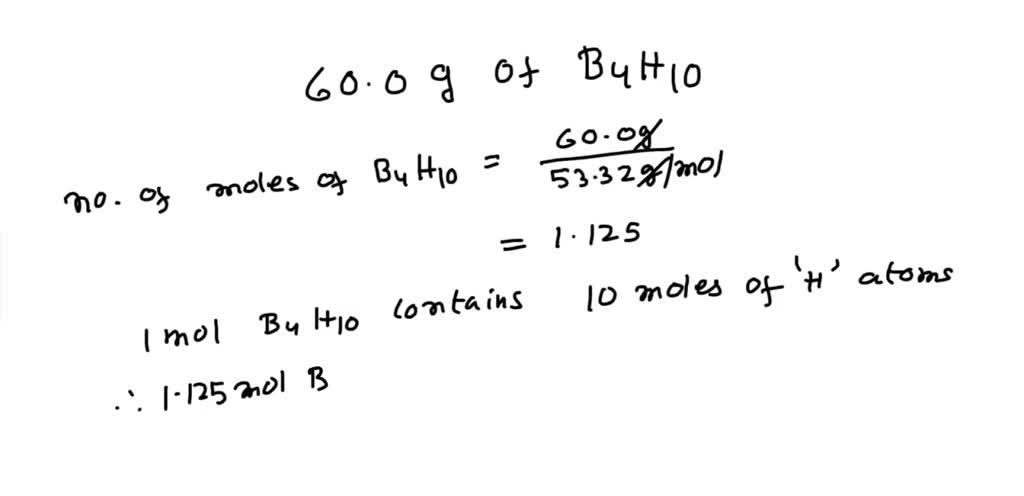 60.0 g of B4H10
no. of moles of B4H10 = 60.0g / 53.32g/mol
= 1.125
1 mol B4H10 contains 10 moles of 'H' atoms
∴ 1.125 mol B